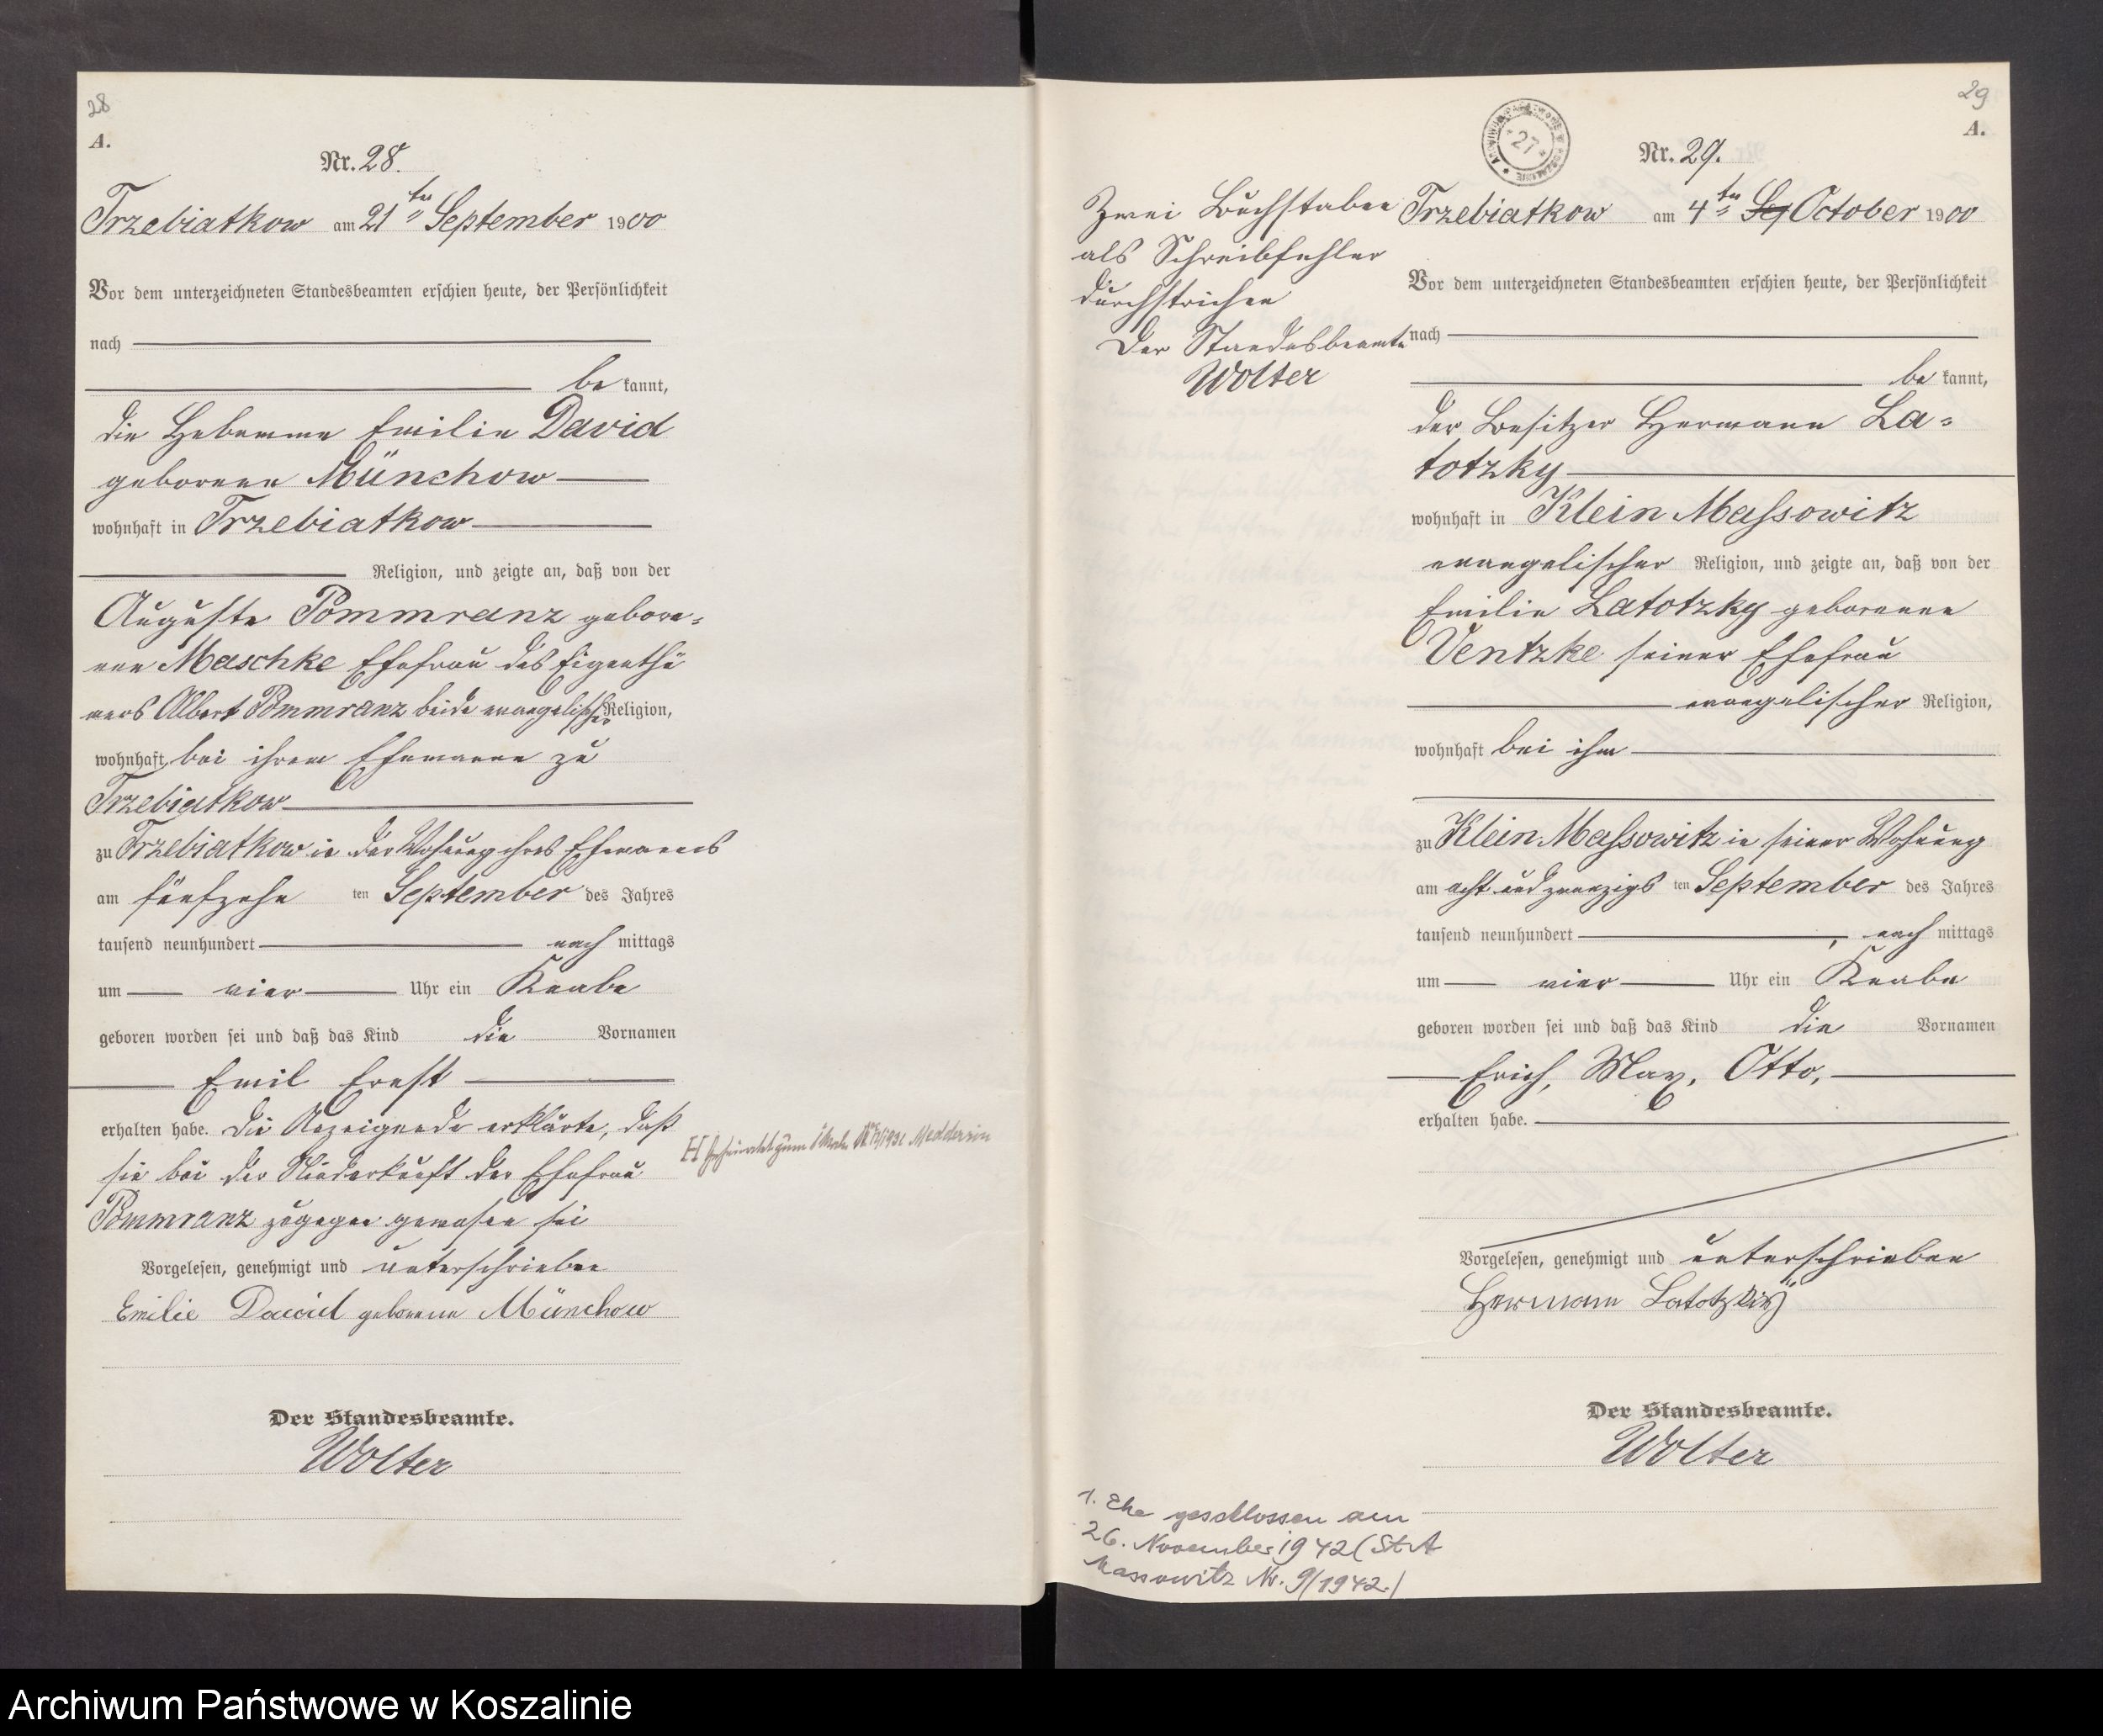 28
A.
Nr. 28.
Trzebiatkow am 21ten September 1900
Vor dem unterzeichneten Standesbeamten erschien heute, der Persönlichkeit
nach
be kannt,
die Hebamme Emilie David
geborene Münchow
wohnhaft in Trzebiatkow
Religion, und zeigte an, daß von der
Auguste Pommranz gebore-
nen Maschke Ehefrau des Eigenthü
mers Albert Pommranz beide evangelischer Religion,
wohnhaft bei ihrem Ehemanne zu
Trzebiatkow
zu Trzebiatkow in der Wohnung ihres Ehemanns
am fünfzehn ten September des Jahres
tausend neunhundert nach mittags
um vier Uhr ein Knabe
geboren worden sei und daß das Kind die Vornamen
Emil Ernst
erhalten habe. Die Anzeigende erklärte, daß
sie bei der Niederkunft der Ehefrau
Pommranz zugegen gewesen sei
Vorgelesen, genehmigt und unterschrieben
Emilie David geborene Münchow
Der Standesbeamte.
Wolter
H 1931 Meddersin
29
A.
27
Nr. 29.
Zwei Buchstaben
als Schreibfehler
durchstrichen
Der Standesbeamte
Wolter
Trzebiatkow am 4ten Se October 1900
Vor dem unterzeichneten Standesbeamten erschien heute, der Persönlichkeit
nach
be kannt,
der Besitzer Hermann La-
totzky
wohnhaft in Klein Massowitz
evangelischer Religion, und zeigte an, daß von der
Emilie Latotzky geborenen
Ventzke seiner Ehefrau
evangelischer Religion,
wohnhaft bei ihm
zu Klein Massowitz in seiner Wohnung
am acht und zwanzigs ten September des Jahres
tausend neunhundert , nach mittags
um vier Uhr ein Knabe
geboren worden sei und daß das Kind die Vornamen
Erich, Max, Otto,
erhalten habe.
Vorgelesen, genehmigt und unterschrieben
Hermann Latotzky
Der Standesbeamte.
Wolter
1. Ehe geschlossen am
26. November 1942 (St.A
Massowitz Nr. 9/1942.)
Archiwum Państwowe w Koszalinie